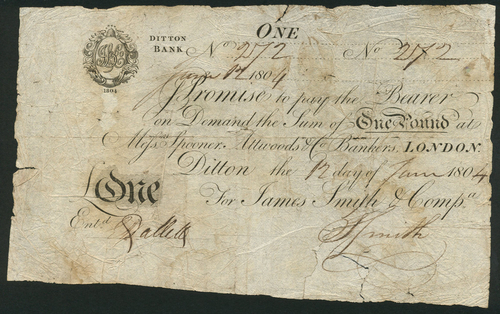 ONE
DITTON
BANK
No 272 No 272
June 12 1804
1804
I Promise to pay the Bearer
on Demand the Sum of One Pound at
Messrs Spooner, Attwoods & Co Bankers, LONDON
Ditton the 12 day of June 1804
£One For James Smith & Compa
Entd JSmith